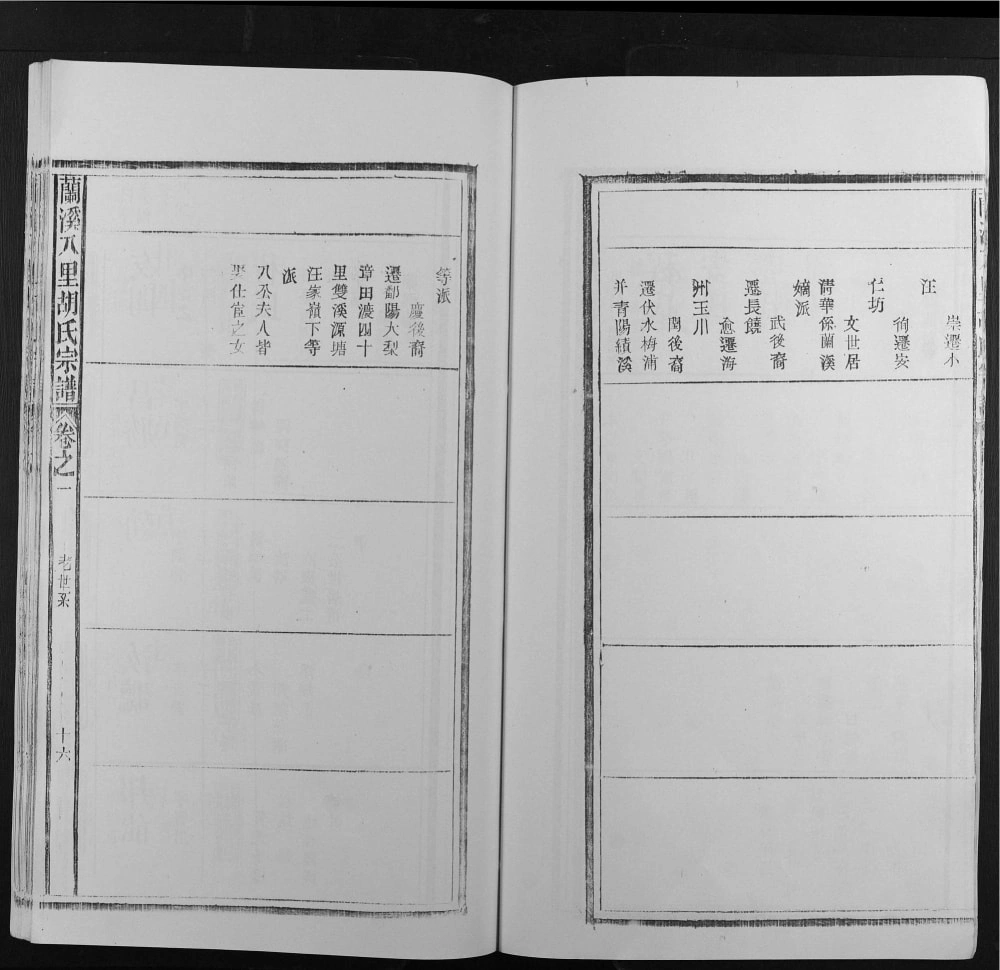 崇遷小
汪
徇遷安
仁坊
文世居
淸華係蘭溪
嫡派
武後裔
遷長饒
愈遷海
州玉川
閏後裔
遷伏水梅浦
并青陽績溪
等派
慶後裔
遷鄱陽大梨
章田渡四十
里雙溪源塘
汪家嶺下等
派
八公夫人皆
仕 之女
蘭溪八里胡氏宗譜
卷之一
老世系
十六